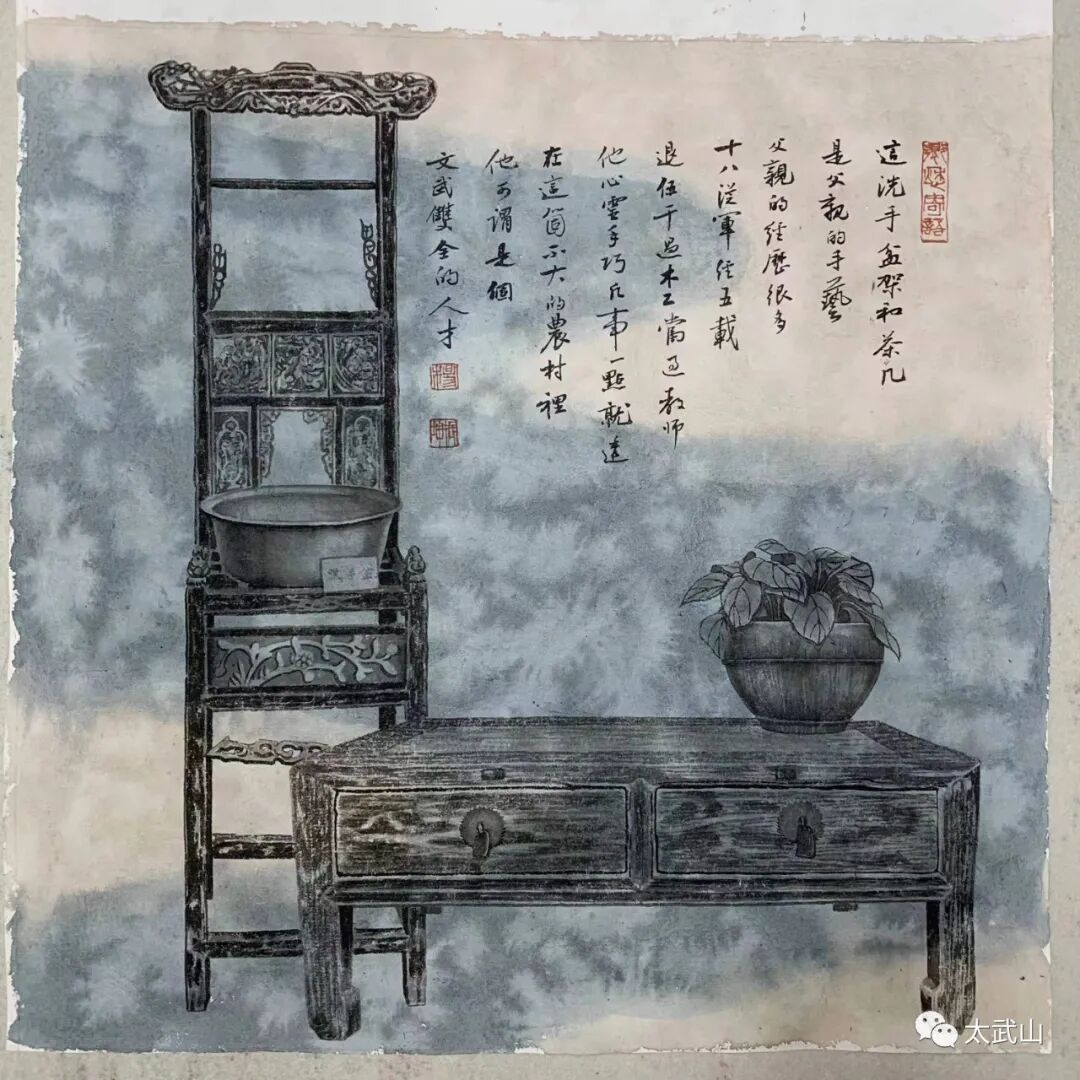 鄉愁寄語
這洗手盆架和茶几
是父親的手藝
父親的經歷很多
十八從軍經五載
退伍干過木工當過教師
他心靈手巧凡事一點就達
在這箇不大的農村裡
他可謂是個
文武雙全的人才
楊
洗手盆
太武山